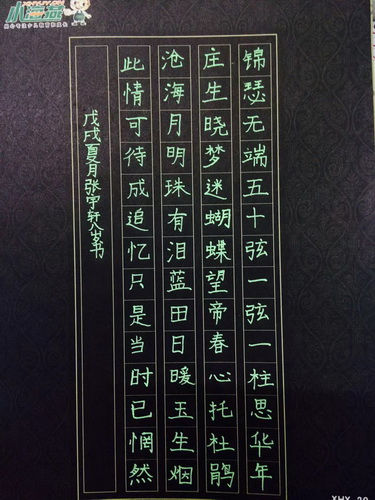 锦瑟无端五十弦一弦一柱思华年
庄生晓梦迷蝴蝶望帝春心托杜鹃
沧海月明珠有泪蓝田日暖玉生烟
此情可待成追忆只是当时已惘然
戊戌夏月张宇轩八岁书